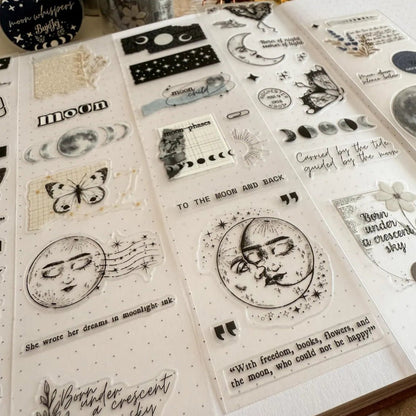 moon whispers
Moon
She wrote her dreams in moonlight ink
Born under
a crescent
sky
moon
child
moon phases
TO THE MOON AND BACK
"
"
"With freedom, books, flowers, and
the moon, who could not be happy?"
Carried by the tide,
guided by the moon
Born
under
a crescent
sky